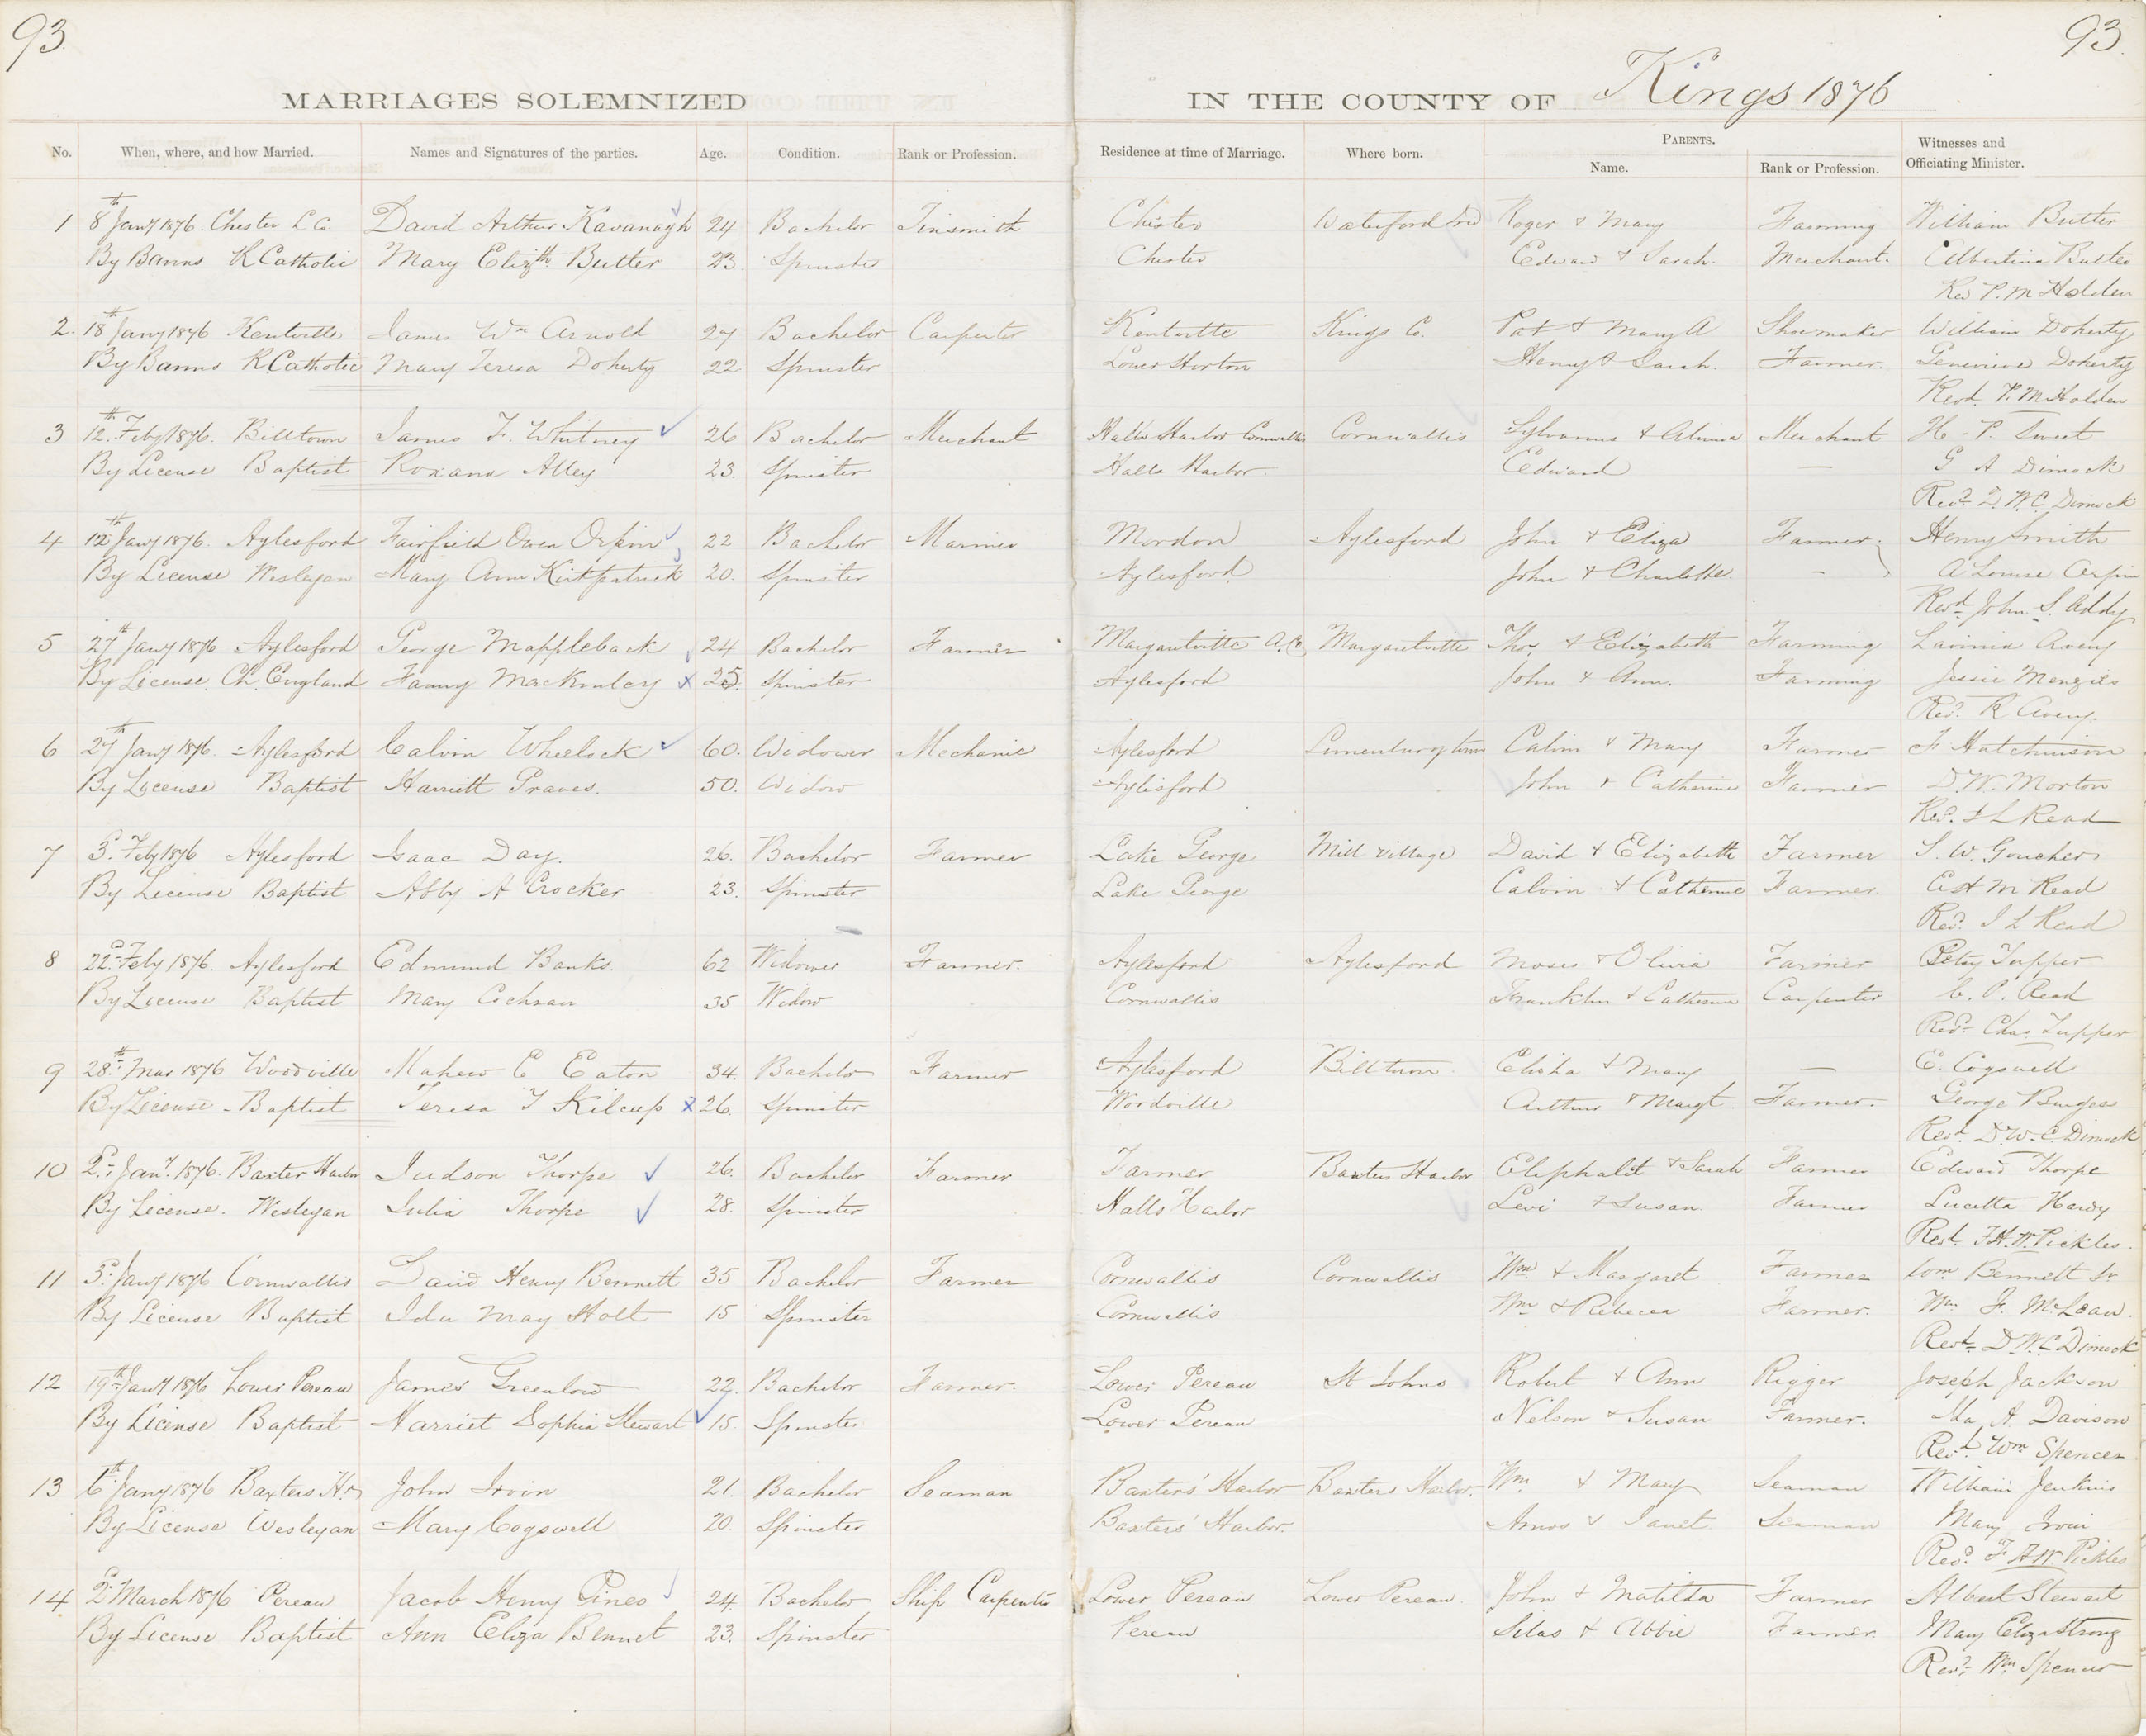 93
93.
MARRIAGES SOLEMNIZED IN THE COUNTY OF Kings 1876
No. When, where, and how Married. Names and Signatures of the parties. Age. Condition. Rank or Profession. Residence at time of Marriage. Where born. PARENTS. Name. Rank or Profession. Witnesses and Officiating Minister.
1 8th Jany 1876. Chester L Co. David Arthur Kavanagh 24 Bachelor Tinsmith Chester Waterford Ired Roger & Mary Farming William Butler
By Banns R Catholic Mary Elizth Butler 23. Spinster Chester Edward & Sarah. Merchant. Albertina Butler
Rev P. M Holden
2. 18th Jany 1876 Kentville James Wm Arnold 27 Bachelor Carpenter Kentville Kings Co. Pat & Mary A Shoemaker William Doherty
By Banns R. Catholic Mary Teresa Doherty 22 Spinster Lower Horton Henry & Sarah. Farmer. Genevieve Doherty
Revd. P. M Holden
3 12th Feby 1876. Billtown James F. Whitney 26 Bachelor Merchant Halls Harbor Cornwallis Cornwallis Sylvanus & Merchant H. P. Sweet
By License Baptist Roxana Alley 23. Spinster Halls Harbor. Edward — G A Dimock
Revd. D. W. C. Dimock
4 12th Jany 1876. Aylesford Fairfield Owen Orpin 22 Bachelor Mariner Mordon Aylesford John & Eliza Farmer Henry Smith
By License Wesleyan Mary Ann Kirkpatrick 20. Spinster Aylesford John & Charlotte. — A Louise Orpin
Revd John S. Addy
5 27th Jany 1876 Aylesford George Mappleback 24 Bachelor Farmer Margaretville A. Co Margaretville Thos & Elizabeth Farming Lavinia Avery
By License. Ch. England Fanny MacKinley x 25. Spinster Aylesford John & Ann. Farming Jessie Menzies
Revd. R Avery.
6 27th Jany 1876. Aylesford Calvin Wheelock 60. Widower Mechanic Aylesford Lunenburg town Calvin & Mary Farmer F Hutchinson
By License Baptist Harriett Graves. 50. Widow Aylesford John & Catherine Farmer D. W. Morton
Revd. I L Read
7 3d. Feby 1876 Aylesford Isaac Day. 26. Bachelor Farmer Lake George Mill village David & Elizabeth Farmer S. W. Goucher
By License Baptist Abby A Crocker 23. Spinster Lake George Calvin & Catherine Farmer. M Read
Revd. I L Read
8 22d Feby 1876. Aylesford Edmund Banks. 62 Widower Farmer. Aylesford Aylesford Moses & Olivia Farmer Betsy Tupper
By License Baptist Mary Cochran 35 Widow Cornwallis Franklin & Catherine Carpenter C. P. Read
Revd. Chas. Tupper
9 28th Mar 1876 Woodville Mahew E Eaton 34. Bachelor Farmer Aylesford Billtown. Elisha & Mary — E. Cogswell
By License - Baptist Teresa T Kilcup x 26. Spinster Woodville Arthur & Margt Farmer. George Burges
Revd. D. W. C. Dimock
10 2d. Jany. 1876. Baxter Harbor Judson Thorpe 26. Bachelor Farmer Farmer Baxters Harbor Eliphalit & Sarah Farmer Edward Thorpe
By License. Wesleyan Julia Thorpe 28. Spinster Halls Harbor Levi & Susan. Farmer Lucilla Hardy
Revd. F. H. W. Pickles.
11 3d. Jany 1876 Cornwallis David Henry Bennett 35 Bachelor Farmer Cornwallis Cornwallis Wm & Margaret Farmer Wm Bennett Sr
By License Baptist Ida May Holt 15 Spinster Cornwallis Wm & Rebecca Farmer. Wm F. McLean.
Revd. D. W. C Dimock
12 19th Jany 1876 Lower Pereau James Greenlow 22. Bachelor Farmer. Lower Pereau St Johns Robert & Ann Rigger Joseph Jackson
By License Baptist Harriet Sophia Stewart 15. Spinster Lower Pereau Nelson & Susan Farmer. A. Davison
Revd. Wm Spencer
13 6th Jany 1876 Baxters Hr John Irvin 21. Bachelor Seaman Baxters' Harbor Baxters Harbor. Wm & Mary Seaman William Jenkins
By License Wesleyan Mary Cogswell 20. Spinster Baxters' Harbor. Amos & Janet. Seaman Mary Irvin
Revd. F. H. W Pickles
14 2d March 1876 Pereau Jacob Henry Pineo 24. Bachelor Ship Carpenter Lower Pereau Lower Pereau. John & Matilda Farmer Albert Stewart
By License Baptist Ann Eliza Bennet 23. Spinster Pereau Silas & Abbie Farmer. Mary Eliza Strong
Revd. Wm. Spencer